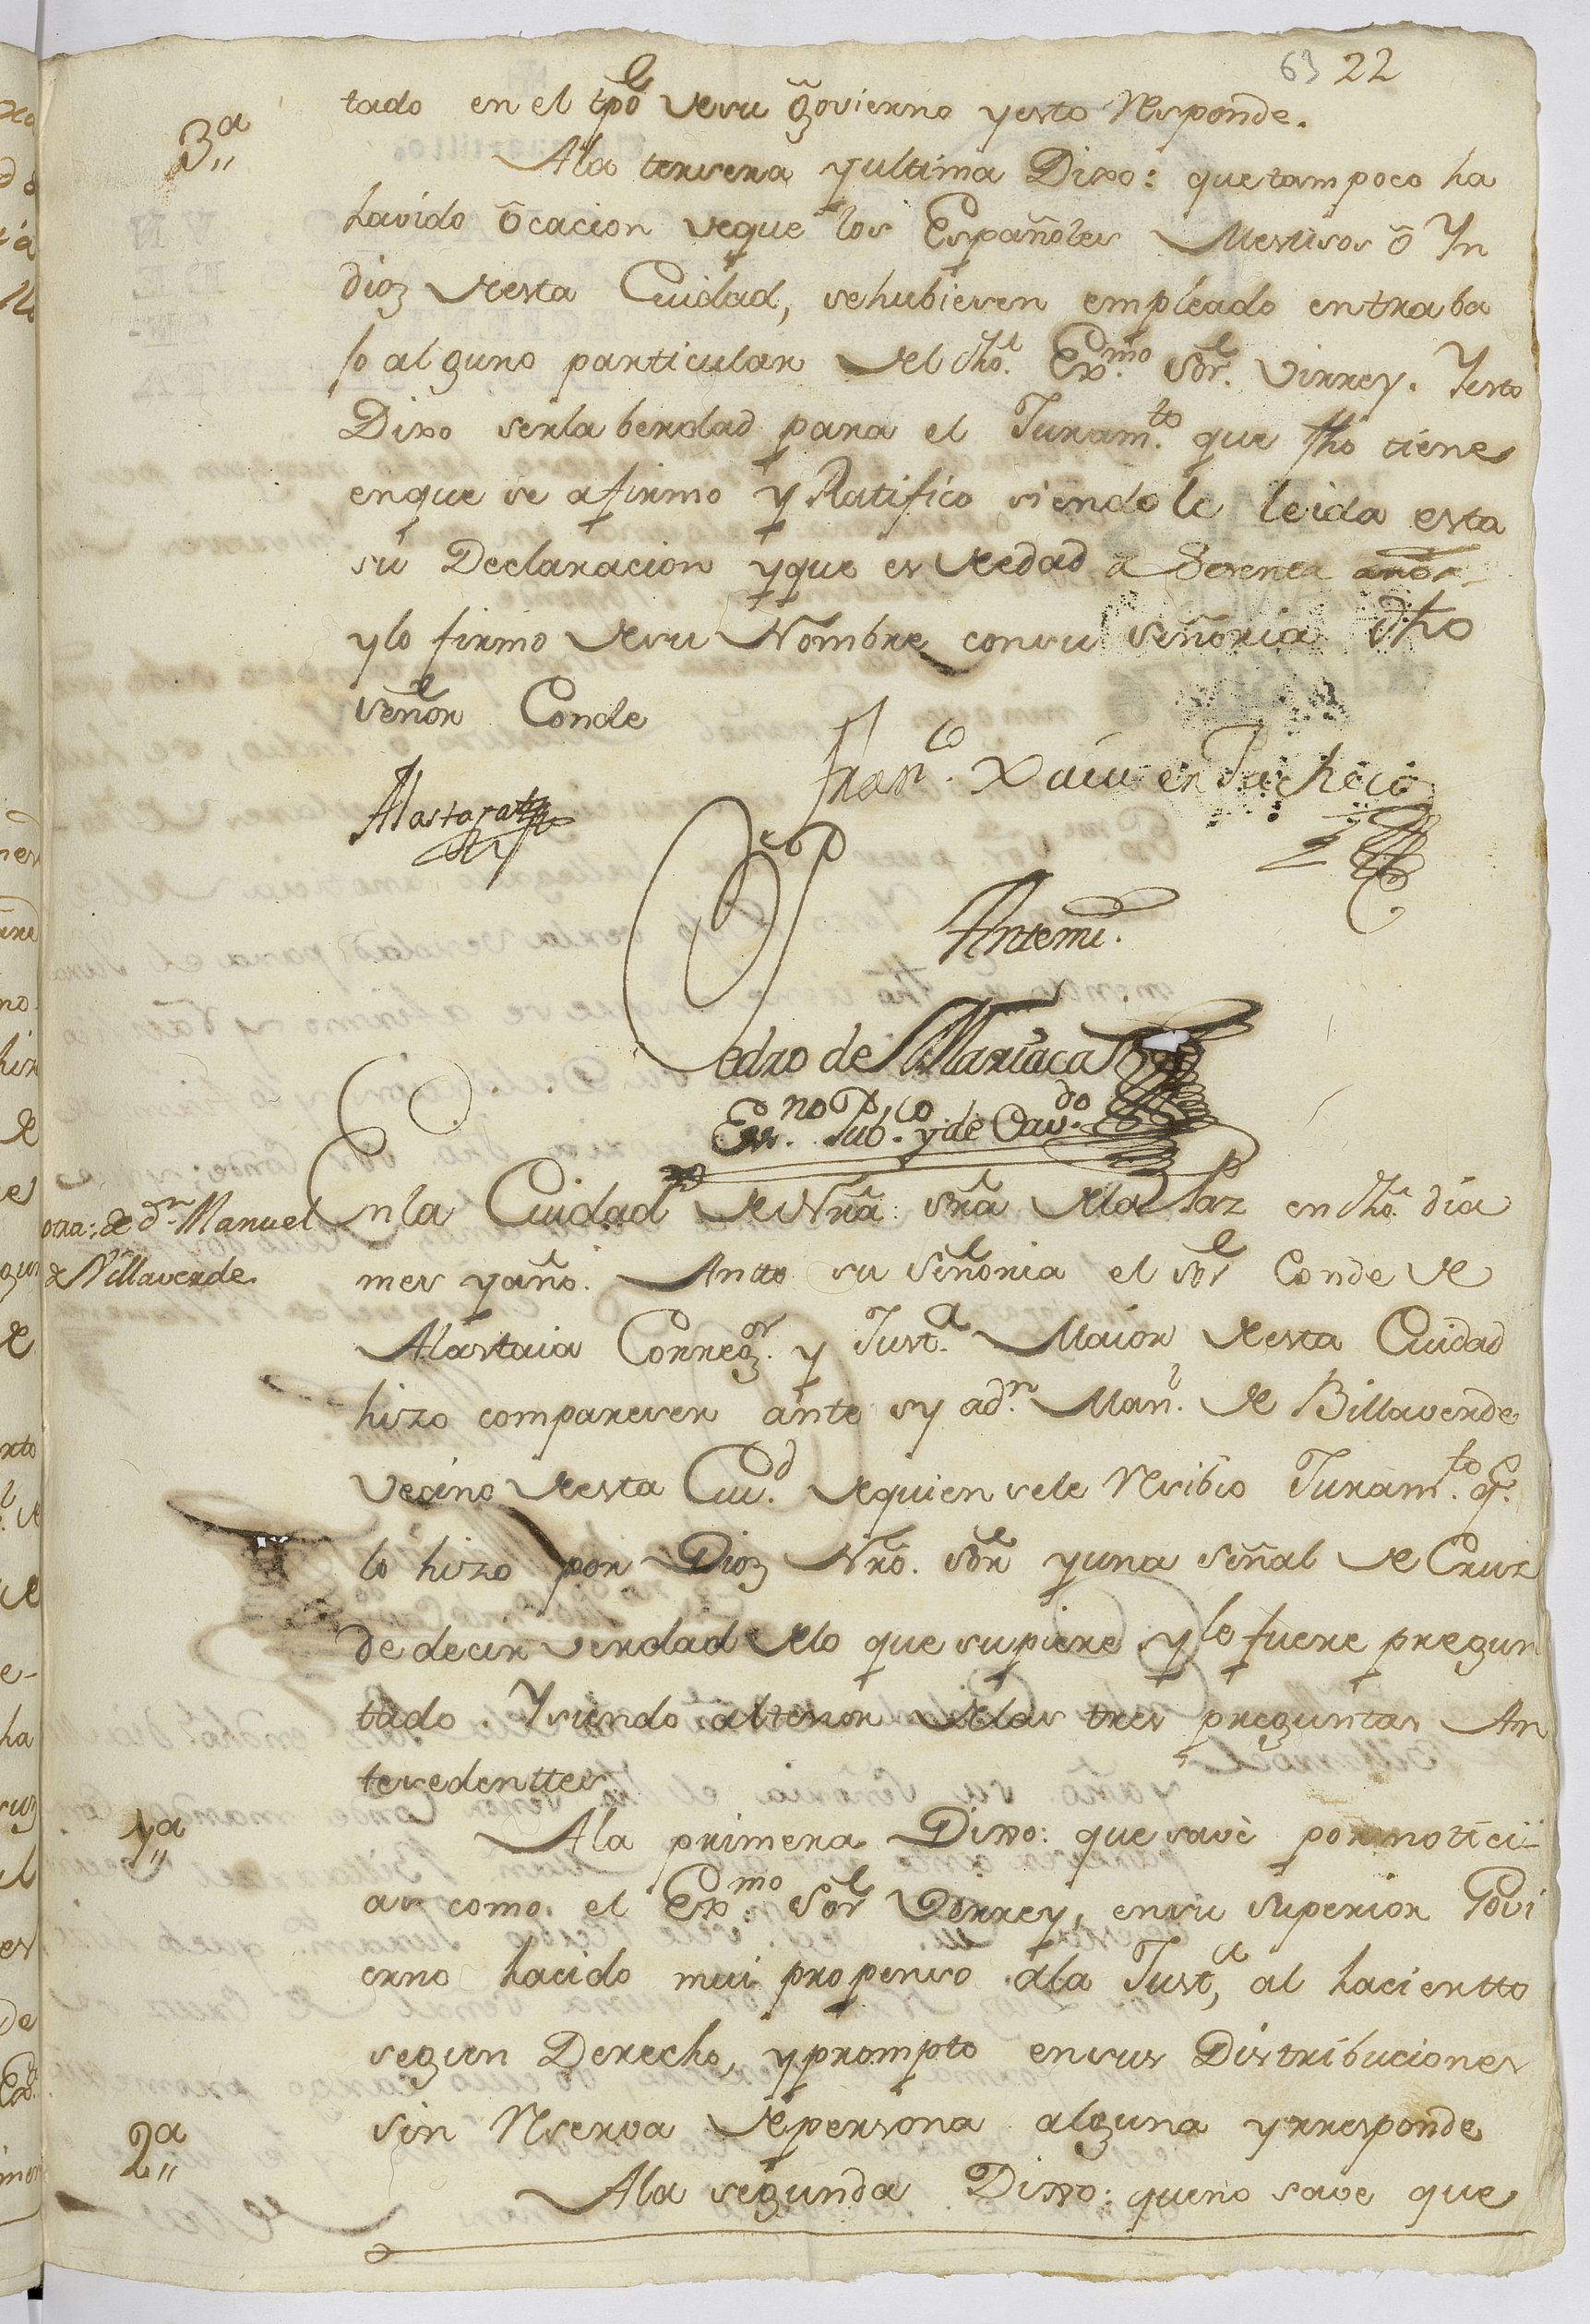 63 22
tado en el tpõ de su govierno y esto Responde.
3ª
A la tersera y ultima Dixo: que tampoco ha
havido ocacion de que los Españoles Mestisos ô Yn
dioz de esta Cuidad, se hubiesen empleado en traba
jo alguno particular del dho. Exmo. Sor. Virrey. Y esto
Dixo ser la berdad para el Juramto. que fho tiene
en que se afirmo y Ratifico siendole leida esta
su Declaracion y que es de edad de sesenta años
y lo firmo de su Nombre con su señoria dho
señor Conde
Alastaya
Franco. Xavier Pacheco
Antemi.
Pedro de Mariaca
Esno. Pubco. y de Cavdo.
ora: de dn. Manuel
de Villaverde.
En la Cuidad de Nrã. srã de la Paz en dho. dia
mes y año. Antto su señoria el sor Conde de
Alastaia Corregor. y Justa. Maior de esta Cuidad
hizo compareser ante sy a dn. Manl. de Billaverde
vecino de esta Ciud. de quien se le Resibio Juramto. q.e
lo hizo por Dioz Nrõ. sor y una señal de Cruz
de decir verdad de lo que supiere y le fuere pregun
tado. Y siendo al tenor de las tres preguntas An
tesedenttes
1ª
A la primera Dixo: que save por notici-
as como. el Exmo. Sor Virrey, en su superior Govi
erno ha cido mui propenso a la Justa, al hacientto
segun Derecho, y prompto en sus Distribuciones
sin Reserva de persona alguna y rresponde
2ª
A la segunda Dixo: que no save que